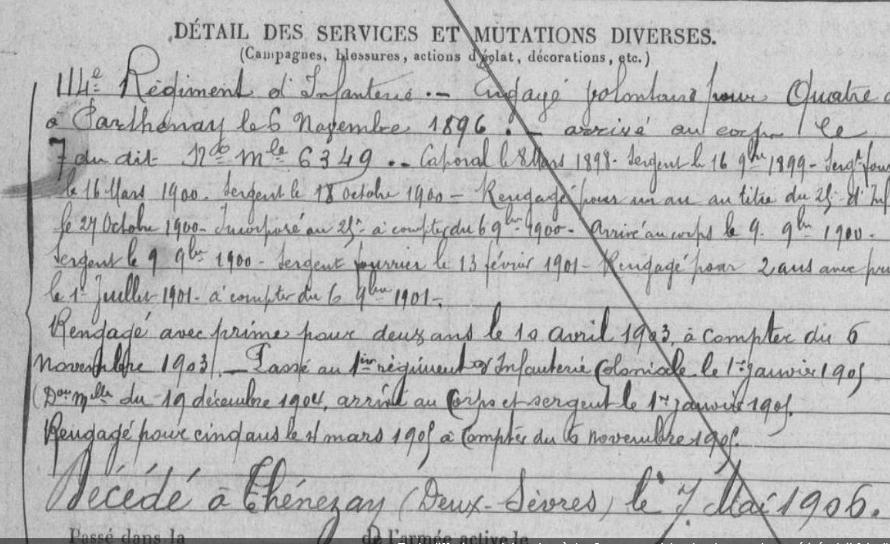 DÉTAIL DES SERVICES ET MUTATIONS DIVERSES.
(Campagnes, blessures, actions d'éclat, décorations, etc.)
114e Régiment d'Infanterie.- Engagé volontaire pour Quatre
à Parthenay le 6 Novembre 1896.- arrivé au corps le
7 du dit No mle 6349.. Caporal le 8 Mars 1898- Sergent le 16 9bre 1899- Sergt four
le 16 Mars 1900. Sergent le 18 octobre 1900- Rengagé pour un an au titre du 25e d'Inf
le 27 Octobre 1900- Incorporé au 25e à compter du 6 9bre 1900- Arrivé au corps le 9. 9bre 1900-
Sergent le 9 9bre 1900- Sergent fourrier le 13 février 1901- Rengagé pour 2 ans avec pri
le 1er Juillet 1901- à compter du 6 9bre 1901-
Rengagé avec prime pour deux ans le 10 avril 1903, à compter du 6
novembre 1903.- Passé au 1er régiment d'Infanterie Coloniale le 1er janvier 1905
(Don mlle du 19 décembre 1904, arrivé au Corps et sergent le 1er janvier 1905.
Rengagé pour cinq ans le 4 mars 1905 à compter du 6 novembre 1905.
Décédé à Thénezay (Deux-Sèvres) le 7 Mai 1906.
Passé dans la de l'armée active le